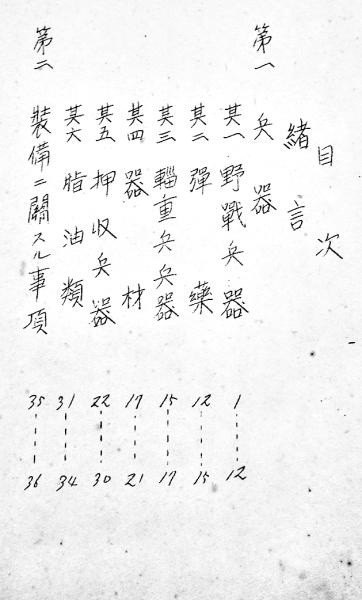 目次
緒言
第一 兵器
其一 野戰兵器 1-----12
其二 彈藥 12-----15
其三 輜重兵兵器 15-----17
其四 器材 17-----21
其五 押收兵器 22-----30
其六 脂油類 31-----34
第二 裝備ニ關スル事項 35-----36